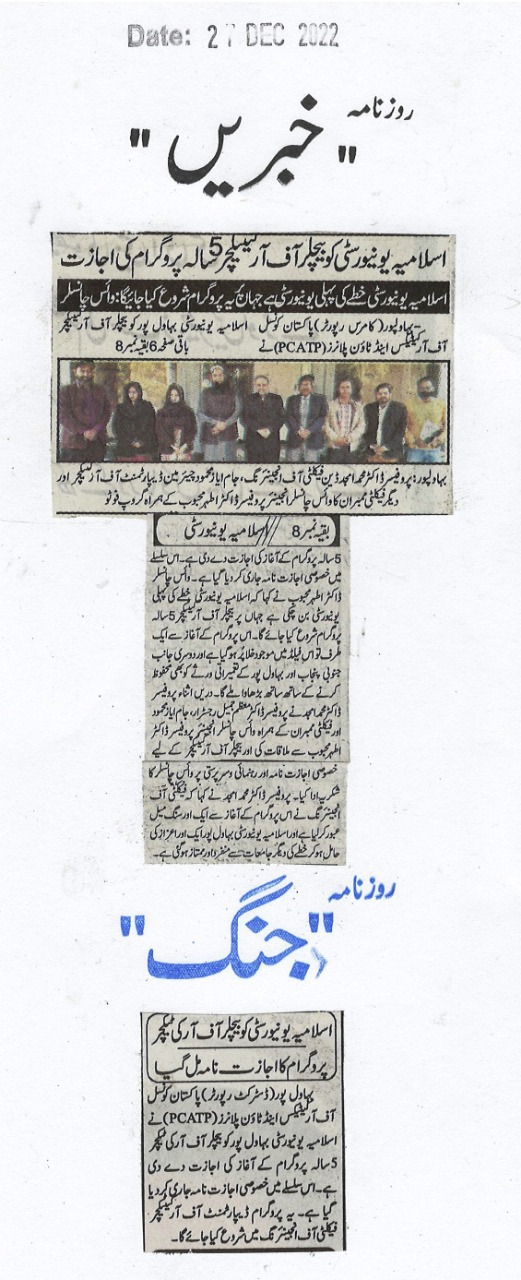 Date: 27 DEC 2022
روزنامہ
"خبریں"
اسلامیہ یونیورسٹی کو بیچلر آف آرکیٹیکچر 5 سالہ پروگرام کی اجازت
اسلامیہ یونیورسٹی خطے کی پہلی یونیورسٹی ہے جہاں یہ پروگرام شروع کیا جائیگا: وائس چانسلر
بہاولپور (کامرس رپورٹر) پاکستان کونسل
آف آرکیٹیکٹس اینڈ ٹاؤن پلانرز (PCATP) نے
اسلامیہ یونیورسٹی بہاول پور کو بیچلر آف آرکیٹیکچر
باقی صفحہ 6 بقیہ نمبر 8
بہاولپور: پروفیسر ڈاکٹر محمد امجد ڈین فیکلٹی آف انجینئرنگ، جام ایاز محمود چیئرمین ڈیپارٹمنٹ آف آرکیٹیکچر اور
دیگر فیکلٹی ممبران کا وائس چانسلر انجینئر پروفیسر ڈاکٹر اطہر محبوب کے ہمراہ گروپ فوٹو
بقیہ نمبر 8 اسلامیہ یونیورسٹی
5 سالہ پروگرام کے آغاز کی اجازت دے دی ہے۔ اس سلسلے
میں خصوصی اجازت نامہ جاری کر دیا گیا ہے۔ وائس چانسلر
ڈاکٹر اطہر محبوب نے کہا کہ اسلامیہ یونیورسٹی خطے کی پہلی
یونیورسٹی بن چکی ہے جہاں پر بیچلر آف آرکیٹیکچر 5 سالہ
پروگرام شروع کیا جائے گا۔ اس پروگرام کے آغاز سے ایک
طرف تو اس فیلڈ میں موجود خلا پُر ہو گیا ہے اور دوسری جانب
جنوبی پنجاب اور بہاول پور کے تعمیراتی ورثے کو بھی محفوظ
کرنے کے ساتھ ساتھ بڑھاوا ملے گا۔ دریں اثناء پروفیسر
ڈاکٹر محمد امجد نے پروفیسر ڈاکٹر معظم جمیل رجسٹرار، جام ایاز محمود
اور فیکلٹی ممبران کے ہمراہ وائس چانسلر انجینئر پروفیسر ڈاکٹر
اطہر محبوب سے ملاقات کی اور بیچلر آف آرکیٹیکچر کے لیے
خصوصی اجازت نامہ اور رہنمائی و سرپرستی پر وائس چانسلر کا
شکریہ ادا کیا۔ پروفیسر ڈاکٹر محمد امجد نے کہا کہ فیکلٹی آف
انجینئرنگ نے اس پروگرام کے آغاز سے ایک اور سنگ میل
عبور کر لیا ہے اور اسلامیہ یونیورسٹی بہاول پور ایک اور اعزاز کی
حامل ہو کر خطے کی دیگر جامعات سے منفرد اور ممتاز ہو گئی ہے۔
روزنامہ
"جنگ"
اسلامیہ یونیورسٹی کو بیچلر آف آرکی ٹیکچر
پروگرام کا اجازت نامہ مل گیا
بہاول پور (ڈسٹرکٹ رپورٹر) پاکستان کونسل
آف آرکیٹیکٹس اینڈ ٹاؤن پلانرز (PCATP) نے
اسلامیہ یونیورسٹی بہاول پور کو بیچلر آف آرکی ٹیکچر
5 سالہ پروگرام کے آغاز کی اجازت دے دی
ہے۔ اس سلسلے میں خصوصی اجازت نامہ جاری کر دیا
گیا ہے۔ یہ پروگرام ڈیپارٹمنٹ آف آرکیٹیکچر
فیکلٹی آف انجینئرنگ میں شروع کیا جائے گا۔